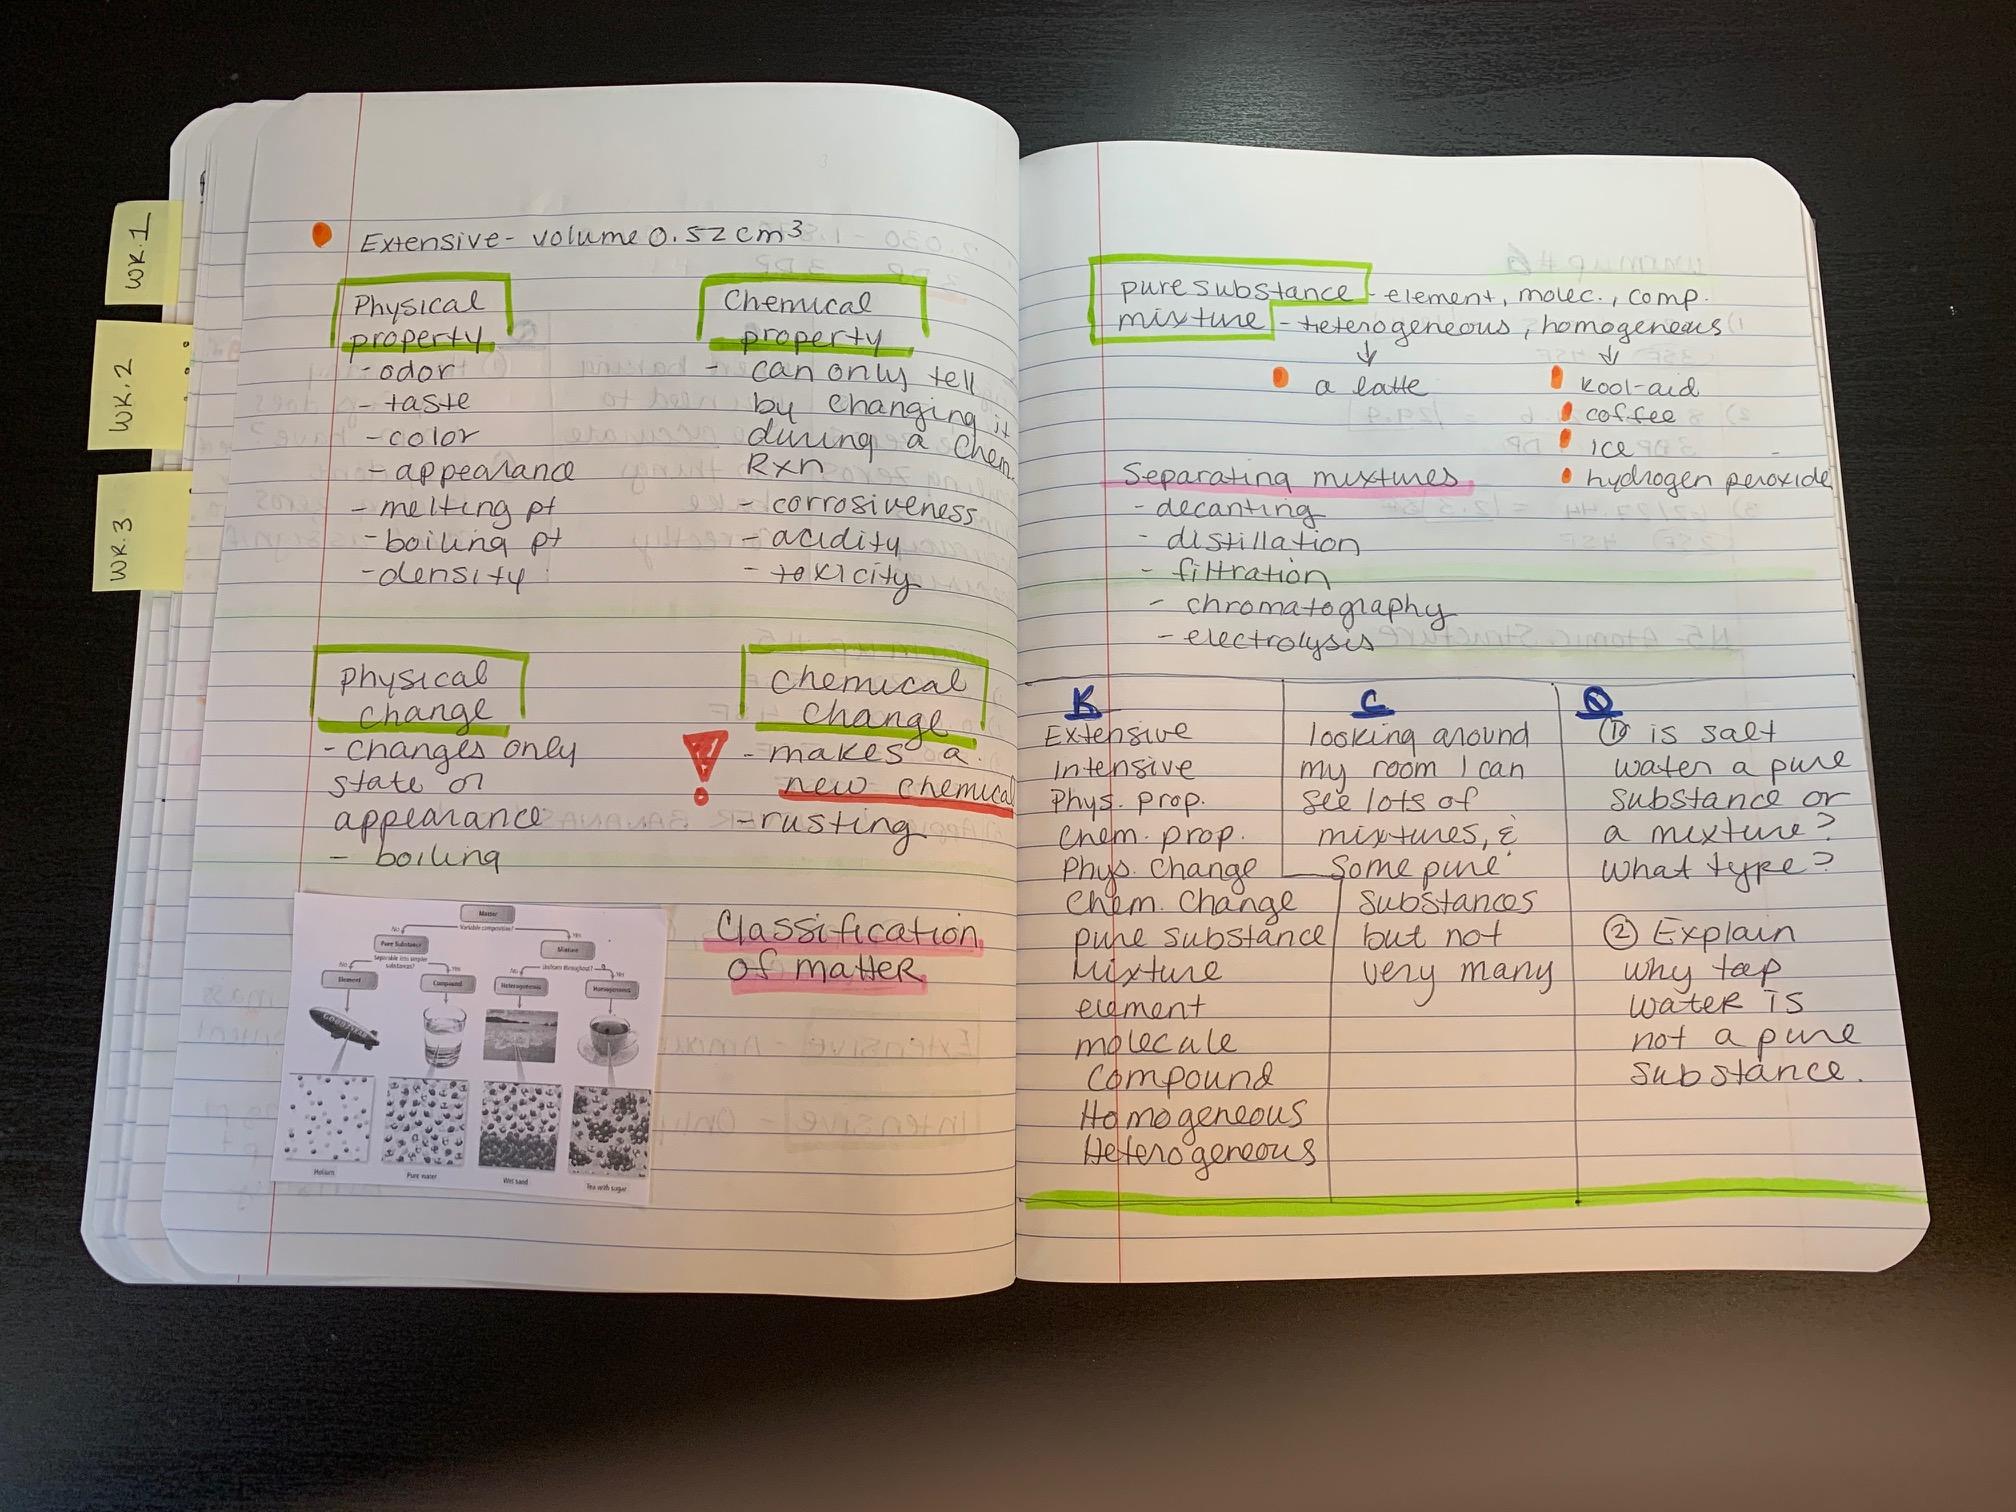 WK.1
WK.2
WK.3
Extensive - volume 0.52 cm³
Physical
property
- odor
- taste
- color
- appearance
- melting pt
- boiling pt
- density
Chemical
property
- can only tell
by changing it
during a Chem.
Rxn
- corrosiveness
- acidity
- toxicity
Physical
change
- changes only
state or
appearance
- boiling
Chemical
change
- makes a
new chemical
- rusting
Classification
of matter
Matter
Variable composition?
No
Yes
Pure Substance
Mixture
Separable into simpler
substances?
Uniform throughout?
No
Yes
No
Yes
Element
Compound
Heterogeneous
Homogeneous
GOODYEAR
Helium
Pure water
Wet sand
Tea with sugar
pure substance - element, molec., comp.
mixture - heterogeneous, homogeneous
a latte
Kool-aid
coffee
ice
hydrogen peroxide
Separating mixtures
- decanting
- distillation
- filtration
- chromatography
- electrolysis
K
Extensive
Intensive
Phys. prop.
Chem. prop.
Phys. Change
Chem. Change
pure substance
Mixture
element
molecule
Compound
Homogeneous
Heterogeneous
C
looking around
my room I can
see lots of
mixtures, &
Some pure
Substances
but not
very many
Q
① is salt
water a pure
substance or
a mixture?
What type?
② Explain
why tap
water is
not a pure
substance.